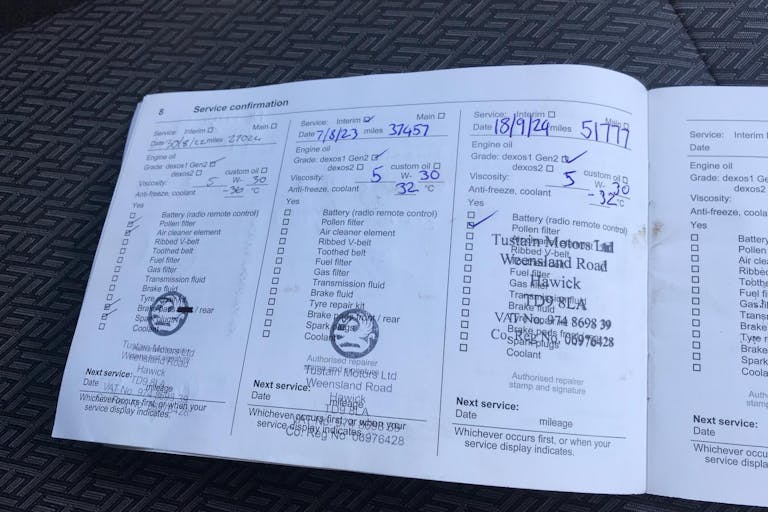 8 Service confirmation
Service: Interim ☐ Main ☐
Date 30/8/22 miles 27024
Engine oil
Grade: dexos1 Gen2 ☑
dexos2 ☐ custom oil ☐
Viscosity: 5 W- 30
Anti-freeze, coolant -36 °C
Yes
Battery (radio remote control)
Pollen filter
Air cleaner element
Ribbed V-belt
Toothed belt
Fuel filter
Gas filter
Transmission fluid
Brake fluid
Tyre
/ rear
Coolant
Tustain Motors Ltd
Weensland Road
Hawick
TD9 8LA
VAT No. 974 8698 39
Next service:
Date mileage
Whichever occurs first, or when your
service display indicates.
Service: Interim ☑ Main ☐
Date 7/8/23 miles 37457
Engine oil
Grade: dexos1 Gen2 ☑
dexos2 ☐ custom oil ☐
Viscosity: 5 W- 30
Anti-freeze, coolant 32 °C
Yes
Battery (radio remote control)
Pollen filter
Air cleaner element
Ribbed V-belt
Toothed belt
Fuel filter
Gas filter
Transmission fluid
Brake fluid
Tyre repair kit
Brake pads front / rear
Spark plugs
Coolant
Authorised repairer
stamp and signature
Tustain Motors Ltd
Weensland Road
Hawick
TD9 8LA
VAT No. 974 8698 39
Co. Reg No. 06976428
Next service:
Date mileage
Whichever occurs first, or when your
service display indicates.
Service: Interim ☐ Main ☐
Date 18/9/24 miles 51777
Engine oil
Grade: dexos1 Gen2 ☑
dexos2 ☐ custom oil ☐
Viscosity: 5 W- 30
Anti-freeze, coolant -32 °C
Yes
Battery (radio remote control)
Pollen filter
Ribbed V-belt
Fuel filter
Gas filter
Transmission fluid
Brake fluid
Brake pads front / rear
Spark plugs
Coolant
Tustain Motors Ltd
Weensland Road
Hawick
TD9 8LA
VAT No. 974 8698 39
Co. Reg No. 06976428
Authorised repairer
stamp and signature
Next service:
Date mileage
Whichever occurs first, or when your
service display indicates.
Service: Interim
Date
Engine oil
Grade: dexos1 Ge
dexos2
Viscosity:
Anti-freeze, coola
Yes
Battery
Pollen
Air cle
Ribbe
Tooth
Fuel fi
Gas fi
Trans
Brake
Tyre r
Brake
Spark
Coola
Auth
stamp
Next service:
Date
Whichever occurs
service displa